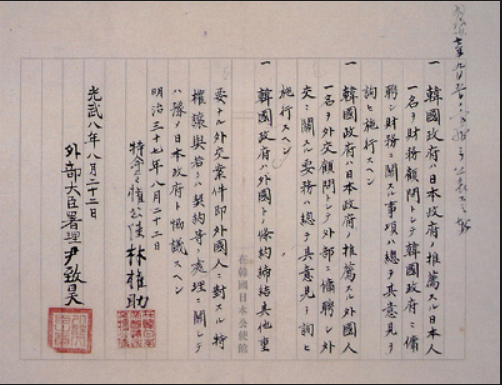 一 韓國政府ハ日本政府ノ推薦スル日本人
一名ヲ財務顧問トシテ韓國政府ニ傭
聘シ財務ニ關スル事項ハ總テ其意見ヲ
詢ヒ施行スヘシ
一 韓國政府ハ日本政府ノ推薦スル外國人
一名ヲ外交顧問トシテ外部ニ傭聘シ外
交ニ關スル要務ハ總テ其意見ヲ詢ヒ
施行スヘシ
一 韓國政府ハ外國トノ條約締結其他重
要ナル外交案件即外國人ニ對スル特
權讓與若クハ契約等ノ處理ニ關シテ
ハ豫メ日本政府ト協議スヘシ
明治三十七年八月二十二日
特命全權公使林權助
光武八年八月二十二日
外部大臣署理尹致昊
在韓國日本公使館